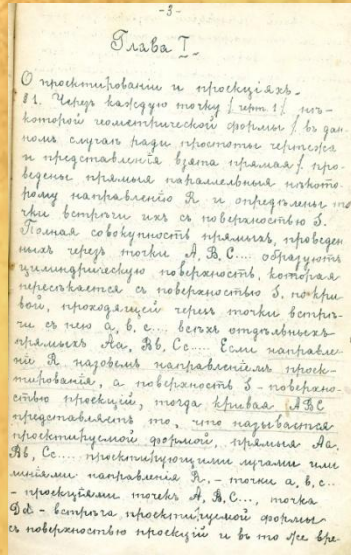 -3-
Глава I
О проектированіи и проекціяхъ.
§1. Черезъ каждую точку /черт. 1/ нѣ-
которой геометрической формы /въ дан-
номъ случаѣ ради простоты чертежа
и представленія взята прямая/ про-
ведены прямыя параллельныя нѣкото-
рому направленію R и опредѣлены то-
чки встрѣчи ихъ съ поверхностью S.
Полная совокупность прямыхъ, проведен-
ныхъ черезъ точки A, B, C.... образуютъ
цилиндрическую поверхность, которая
пересѣкается съ поверхностью S. по кри-
вой, проходящей черезъ точки встрѣ-
чи съ нею a, b, c... всѣхъ отдѣльныхъ
прямыхъ Aa, Bb, Cc..... Если направле-
ніе R назовемъ направленіемъ проек-
тированія, а поверхность S - поверхно-
стью проекцій, тогда кривая ABC
представляетъ то, что называется
проектируемой формой, прямыя Aa,
Bb, Cc.... проектирующими лучами или
линіями направленія R, - точки a, b, c...
- проекціями точекъ A, B, C..., точка
- встрѣча проектируемой формы
съ поверхностью проекцій и въ то же вре-